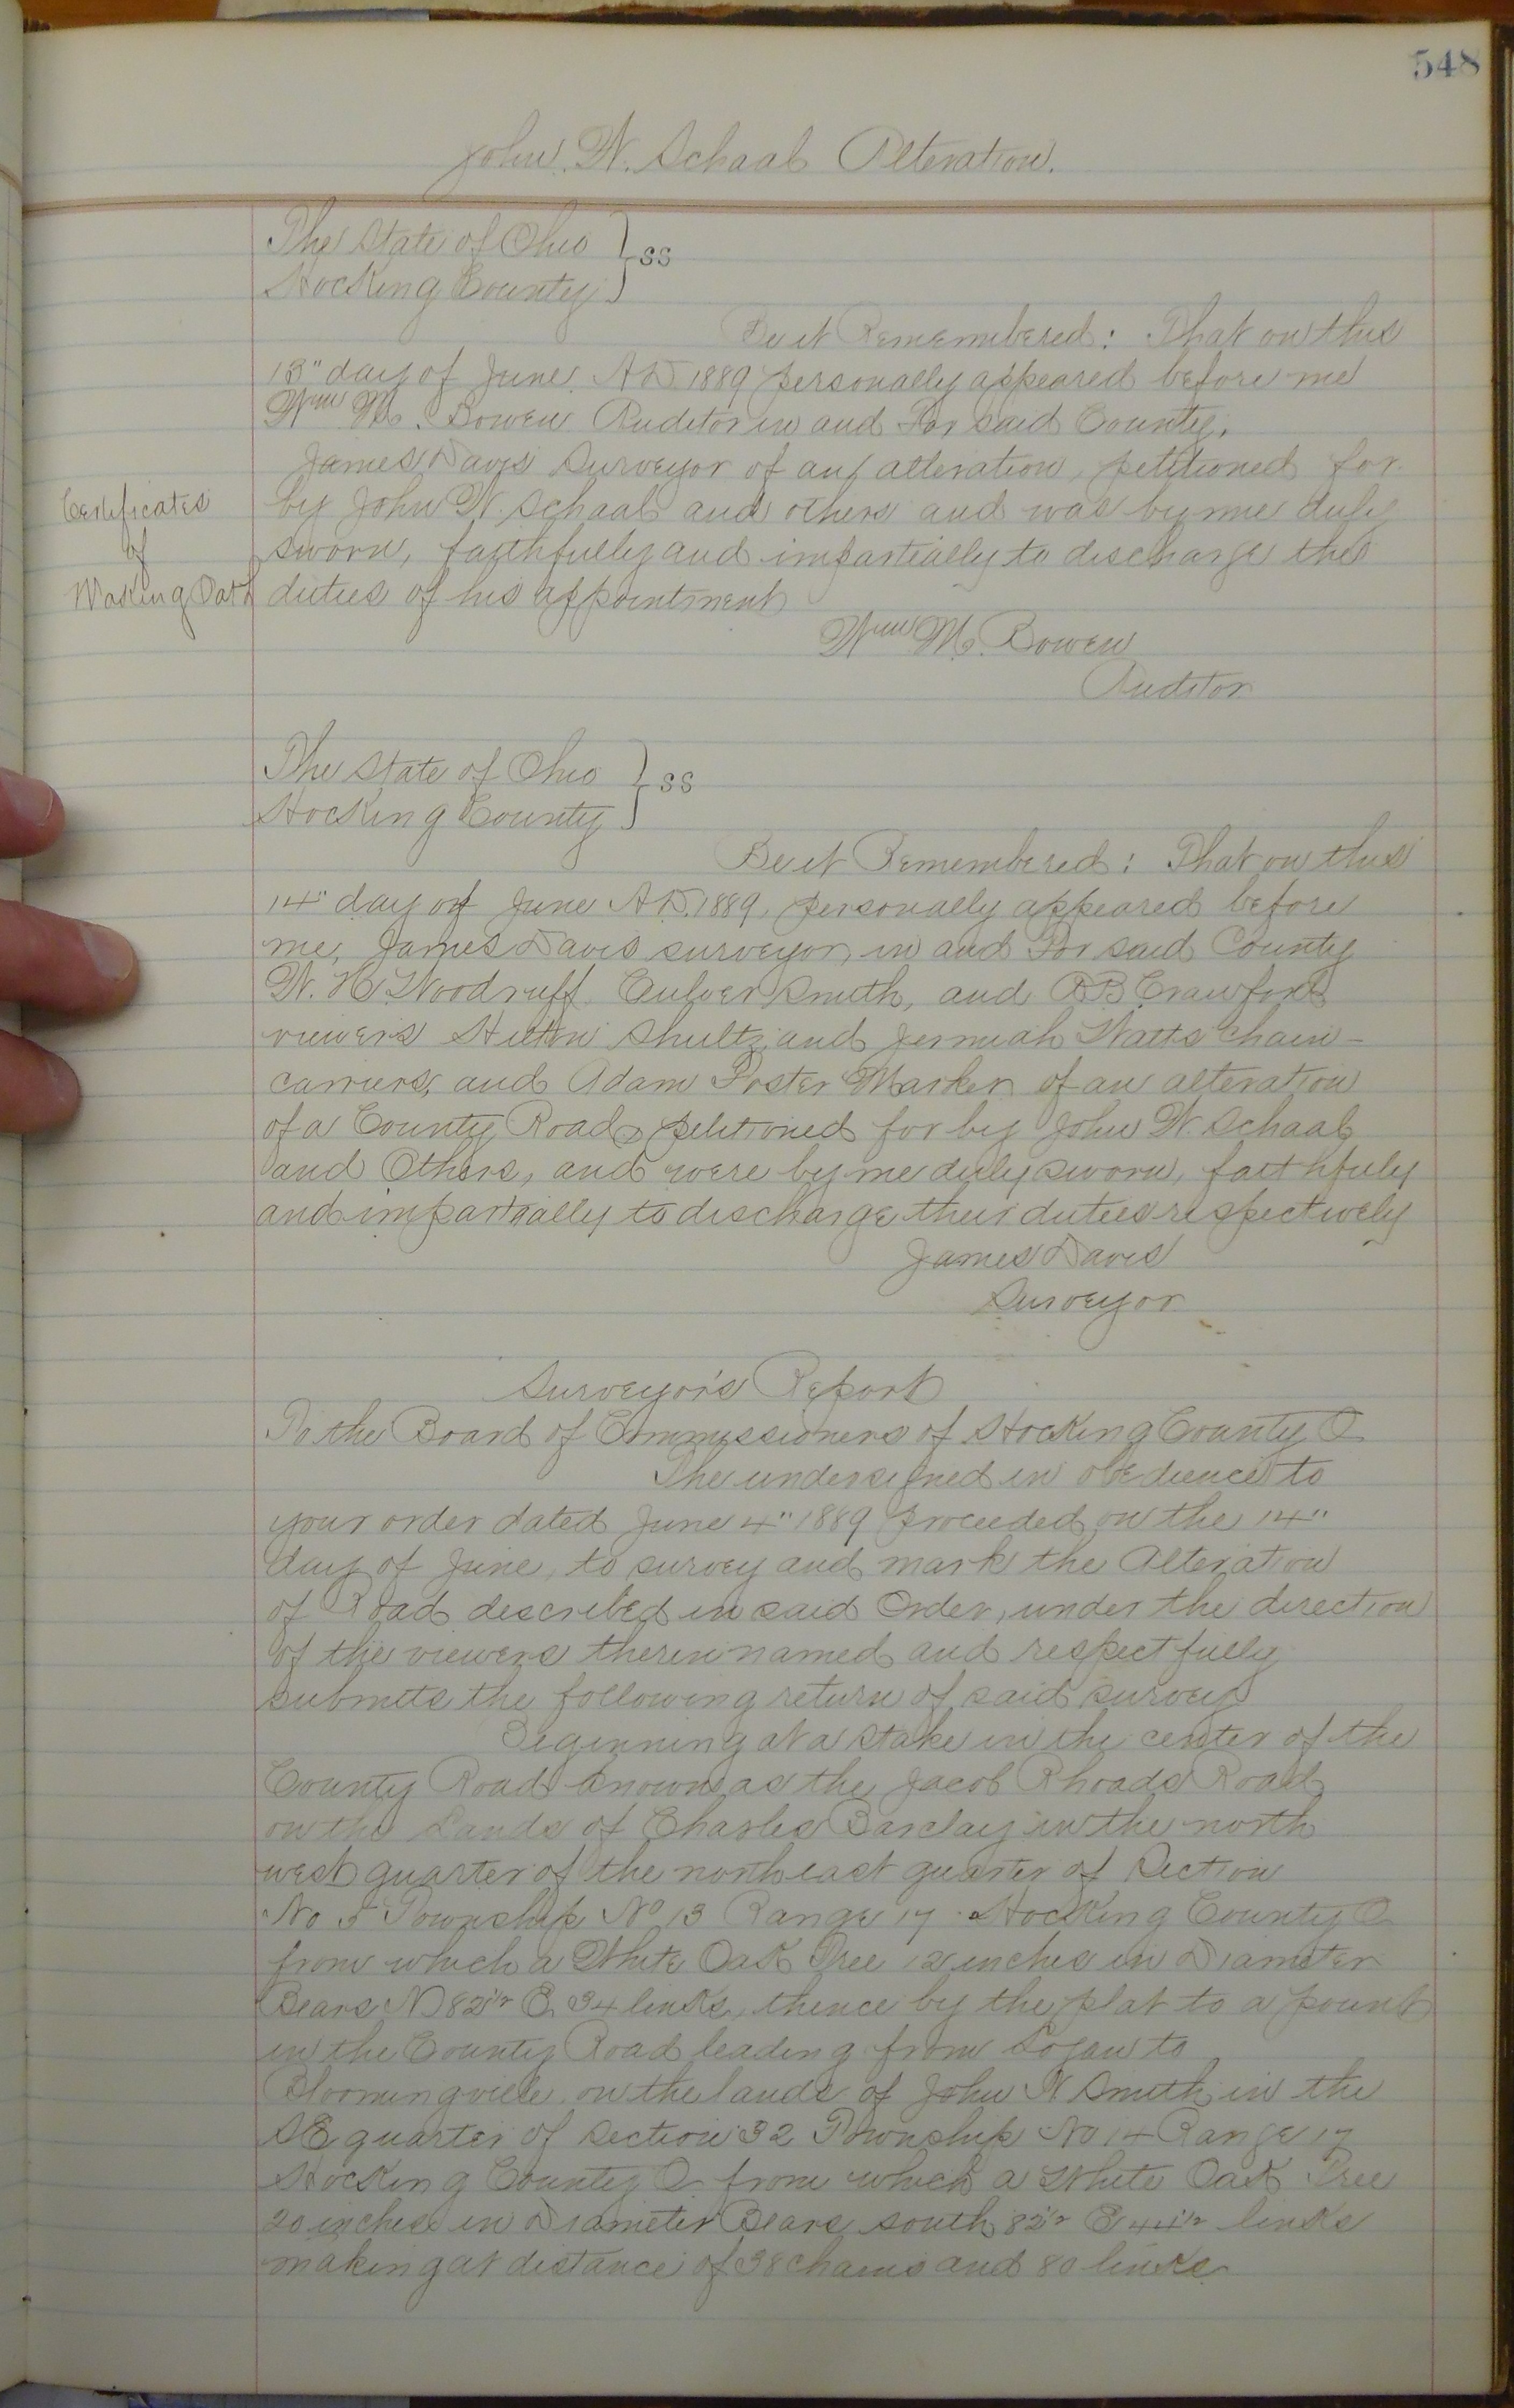 548
John. W. Schaal Alteration.
The State of Ohio } SS
Hocking County
Be it Remembered: That on this
13" day of June A.D. 1889 personally appeared before me
Wm M. Bowen Auditor in and For said County,
James Davis Surveyor of an alteration, petitioned for
by John W. Schaal and others and was by me duly
sworn, faithfully and impartially to discharge the
duties of his appointment
Certificates
of
Making Oath
Wm M. Bowen
Auditor
The State of Ohio } SS
Hocking County
Be it Remembered: That on this
14" day of June A.D. 1889, personally appeared before
me, James Davis surveyor, in and For said County
W. H. Woodruff, Culver Smith, and B B Crawford
viewers Hilton Shultz, and Jermiah Watts Chain-
carriers, and Adam Poster Marker of an alteration
of a County Road, petitioned for by John W. Schaal
and Others, and were by me duly sworn, faithfuly
and impartially to discharge their duties respectively
James Davis
Surveyor
Surveyor's Report
To the Board of Commissioners of Hocking County O
The undersigned in obedience to
your order dated June 4" 1889 proceeded on the 14"
day of June, to survey and mark the Alteration
of Road described in said Order, under the direction
of the viewers therein named and respectfully
submits the following return of said survey
Beginning at a stake in the center of the
County Road known as the Jacob Rhoads Road
on the Lands of Charles Barclay in the north
west quarter of the northeast quarter of Section
No 5 Township No 13 Range 17 Hocking County O
from which a White Oak Tree 12 inches in Diameter
Bears N 82 1/2 E 34 links, thence by the plat to a point
in the County Road leading from Logan to
Bloomingville on the lands of John N Smith in the
SE quarter of Section 32 Township No 14 Range 17
Hocking County O from which a White Oak Tree
20 inches in Diameter Bears south 82 1/2 E 44 1/2 links
making at distance of 38 chains and 80 links